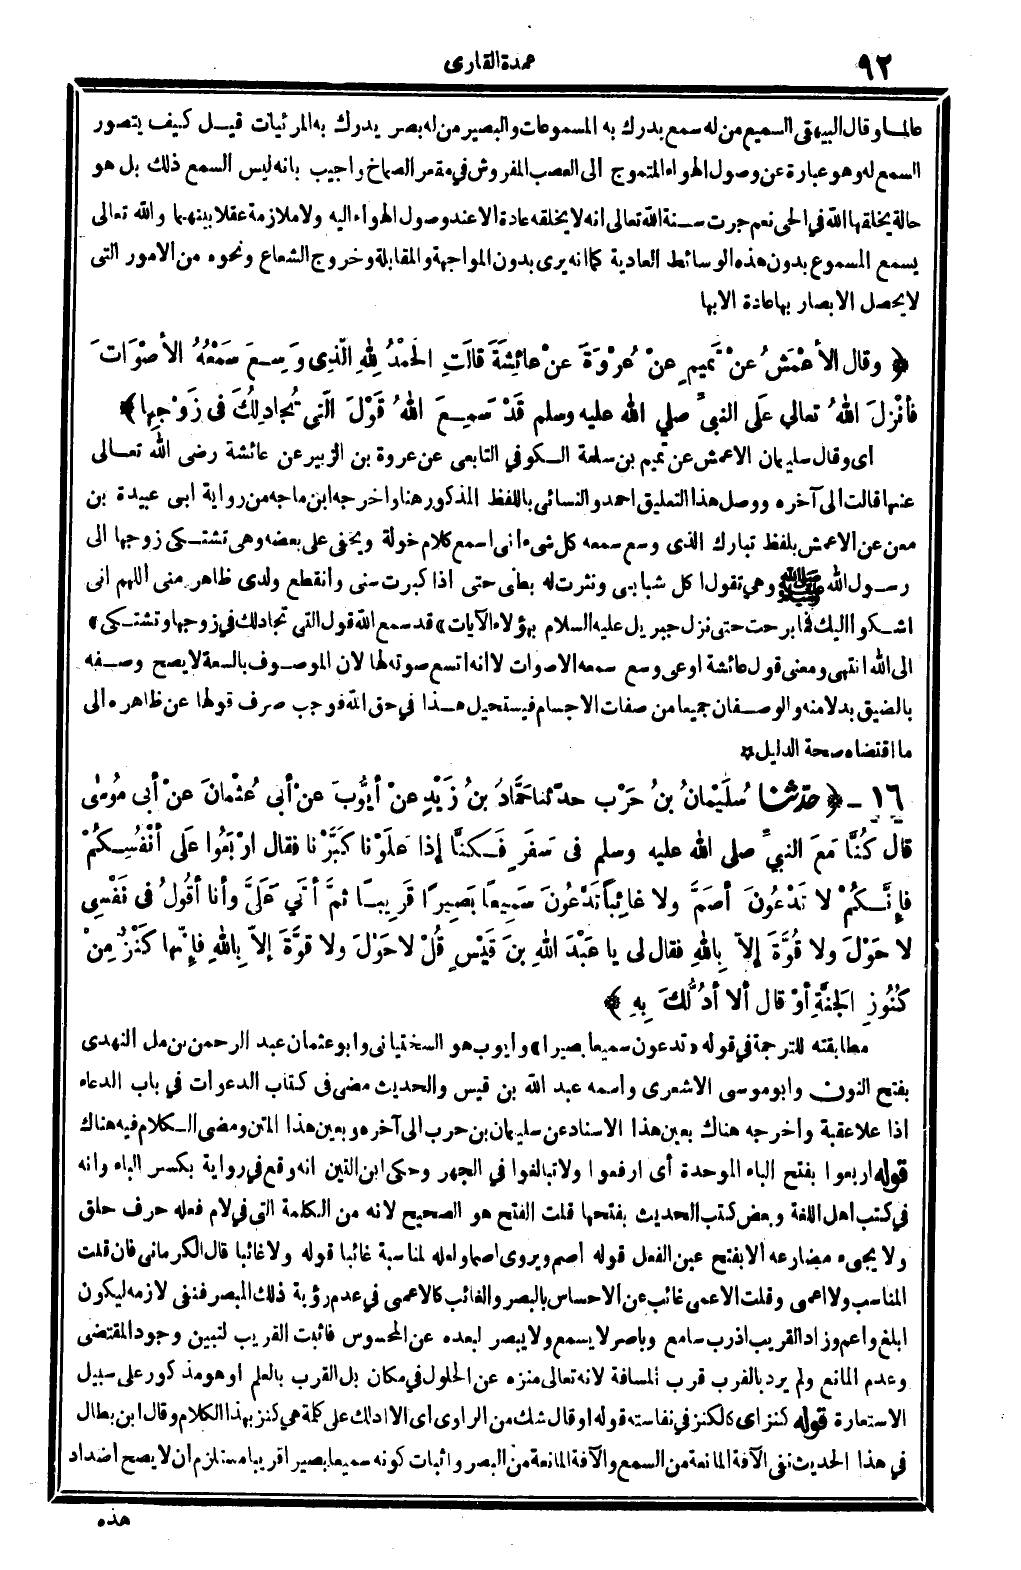 ٩٢
عمدة القارى
عالما وقال البيهقى السميع من له سمع يدرك به المسموعات والبصير من له بصر يدرك به المرئيات قيل كيف يتصور
السمع له وهو عبارة عن وصول الهواء المتموج الى العصب المفروش في مقعر الصماخ واجيب بانه ليس السمع ذلك بل هو
حالة يخلقها الله في الحى نعم جرت سنة الله تعالى انه لا يخلقه عادة الا عند وصول الهواء اليه ولا ملازمة عقلا بينهما والله تعالى
يسمع المسموع بدون هذه الوسائط العادية كما انه يرى بدون المواجهة والمقابلة وخروج الشعاع ونحوه من الامور التى
لا يحصل الابصار بها عادة الا بها
﴿ وقال الأعْمَشُ عنْ تَمِيمٍ عنْ عُرْوَةَ عنْ عائِشَةَ قالَتِ الحَمْدُ لِلهِ الَّذِى وَسِعَ سَمْعُهُ الأصْوَاتَ
فأنْزلَ اللهُ تعالي عَلَى النبيِّ صلي الله عليه وسلم قَدْ سَمِعَ اللهُ قَوْلَ الَّتِى تُجادِلُكَ فى زَوْجِها ﴾
اى وقال سليمان الاعمش عن تميم بن سلمة الكوفي التابعى عن عروة بن الزبير عن عائشة رضى الله تعالى
عنها قالت الى آخره ووصل هذا التعليق احمد والنسائى باللفظ المذكور هنا واخرجه ابن ماجه من رواية ابى عبيدة بن
معن عن الاعمش بلفظ تبارك الذى وسع سمعه كل شىء انى اسمع كلام خولة ويخفى على بعضه وهى تشتكى زوجها الى
رسول الله ﷺ وهي تقول اكل شبابى ونثرت له بطنى حتى اذا كبرت سنى وانقطع ولدى ظاهر منى اللهم انى
اشكوا اليك فما برحت حتى نزل جبريل عليه السلام بهؤلاء الآيات» قد سمع الله قول التى تجادلك في زوجها وتشتكى»
الى الله انتهى ومعنى قول عائشة اوعى وسع سمعه الاصوات لا انه اتسع صوته لها لان الموصوف بالسعة لا يصح وصفه
بالضيق بدلا منه والوصفان جميعا من صفات الاجسام فيستحيل هذا في حق الله فوجب صرف قولها عن ظاهره الى
ما اقتضاه صحة الدليل ۞
١٦ ـ ﴿ حدّثنا سُلَيْمانُ بنُ حَرْبٍ حدّثنا حَمَّادُ بنُ زَيْدٍ عنْ أيُّوبَ عنْ أبى عُثْمانَ عنْ أبى مُوسٰى
قال كُنَّا مَعَ النبيِّ صلى الله عليه وسلم فى سَفَرٍ فَكنَّا إذا عَلَوْنا كَبَّرْنا فقال ارْبَعُوا عَلَى أنْفُسِكُمْ
فإنَّكُمْ لا تَدْعُونَ أصَمَّ ولا غائِباً تَدْعُونَ سَمِيعًا بَصِيرًا قَرِيبًا ثمَّ أتَي عَلَيَّ وأنا أقُولُ فى نَفْسِى
لا حَوْلَ ولا قُوَّةَ إلاّ بِاللهِ فقال لى يا عَبْدَ اللهِ بنَ قَيْسٍ قُلْ لا حَوْلَ ولا قوَّةَ إلاّ بِاللهِ فإنّها كَنْزٌ مِنْ
كُنُوزِ الجَنَّةِ أوْ قال ألا أدُلُّكَ بِهِ ﴾
مطابقته للترجمة في قوله «تدعون سميعا بصيرا» وايوب هو السختيانى وابو عثمان عبد الرحمن بن مل النهدى
بفتح النون وابو موسى الاشعرى واسمه عبد الله بن قيس والحديث مضى فى كتاب الدعوات في باب الدعاء
اذا علا عقبة واخرجه هناك بعين هذا الاسناد عن سليمان بن حرب الى آخره وبعين هذا المتن ومضى الكلام فيه هناك
قوله اربعوا بفتح الباء الموحدة أى ارفعوا ولا تبالغوا في الجهر وحكى ابن التين انه وقع في رواية بكسر الباء وانه
في كتب اهل اللغة وبعض كتب الحديث بفتحها قلت الفتح هو الصحيح لانه من الكلمة التى في لام فعله حرف حلق
ولا يجىء مضارعه الا بفتح عين الفعل قوله أصم ويروى اصما ولعله لمناسبة غائبا قوله ولا غائبا قال الكرمانى فان قلت
المناسب ولا اعمى وقلت الاعمى غائب عن الاحساس بالبصر والغائب كالاعمى في عدم رؤية ذلك المبصر فنفى لازمه ليكون
ابلغ واعم وزاد القريب اذ رب سامع وباصر لا يسمع ولا يبصر لبعده عن المحسوس فاثبت القريب لتبين وجود المقتضى
وعدم المانع ولم يرد بالقرب قرب المسافة لانه تعالى منزه عن الحلول في مكان بل القرب بالعلم او هو مذكور على سبيل
الاستعارة قوله كنز اى كالكنز في نفاسته قوله او قال شك من الراوى اى الا ادلك على كلمة هي كنز بهذا الكلام وقال ابن بطال
في هذا الحديث نفى الآفة المانعة من السمع والآفة المانعة من البصر واثبات كونه سميعا بصيرا قريبا مستلزم ان لا يصح اضداد
هذه